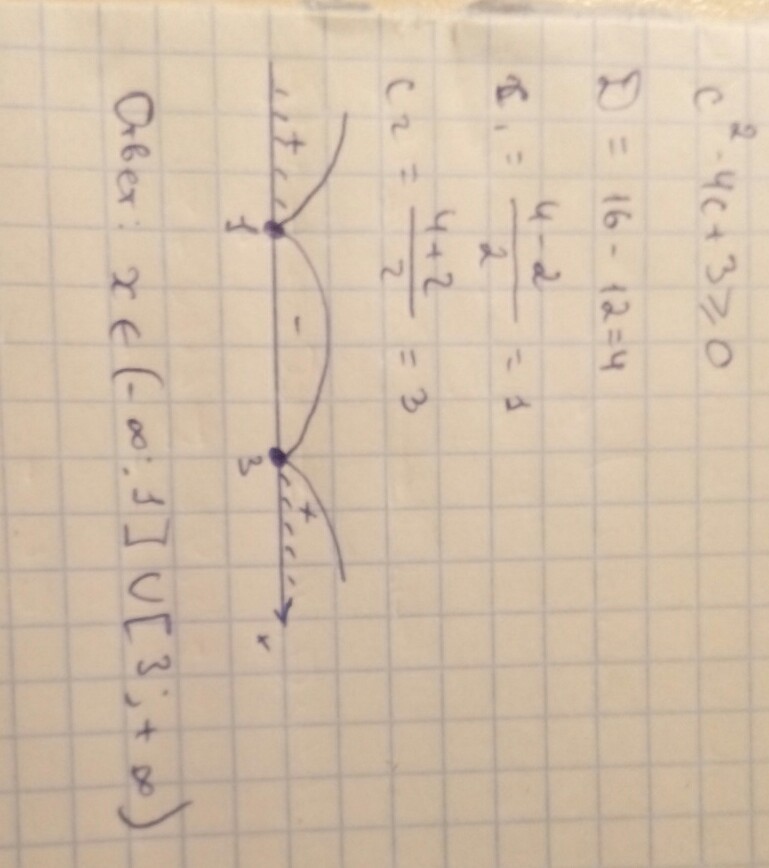 c² - 4c + 3 ≥ 0
D = 16 - 12 = 4
c₁ = (4 - 2)/2 = 1
c₂ = (4 + 2)/2 = 3
+ - +
1 3 x
Ответ: x ∈ (-∞; 1] ∪ [3; +∞)